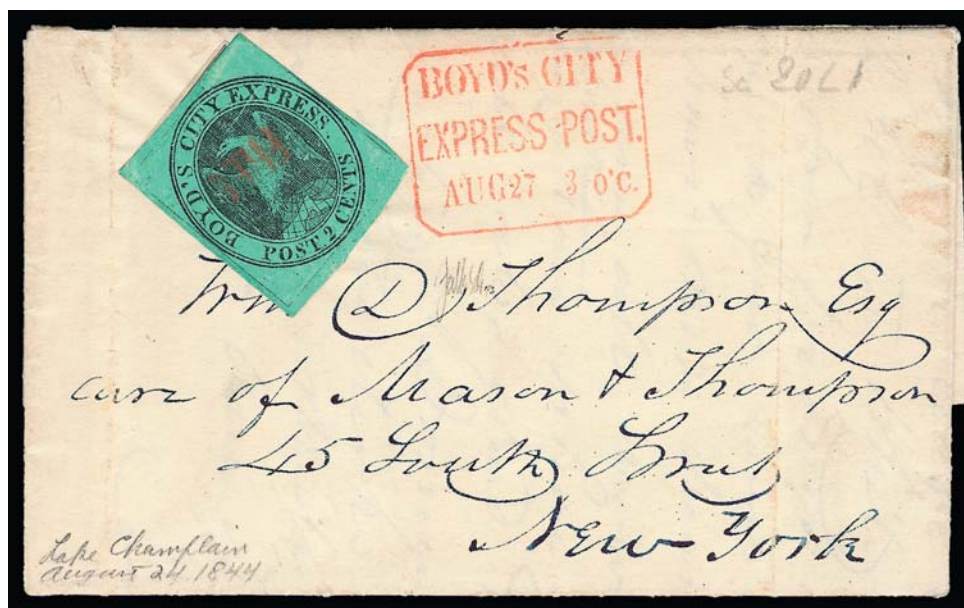 BOYD'S CITY EXPRESS
POST 2 CENTS
BOYD'S CITY
EXPRESS POST.
AUG 27 3 O'C.
Sc 20L1
Wm D Thompson Esq
care of Mason & Thompson
45 South Street
New York
Lake Champlain
August 24 1844